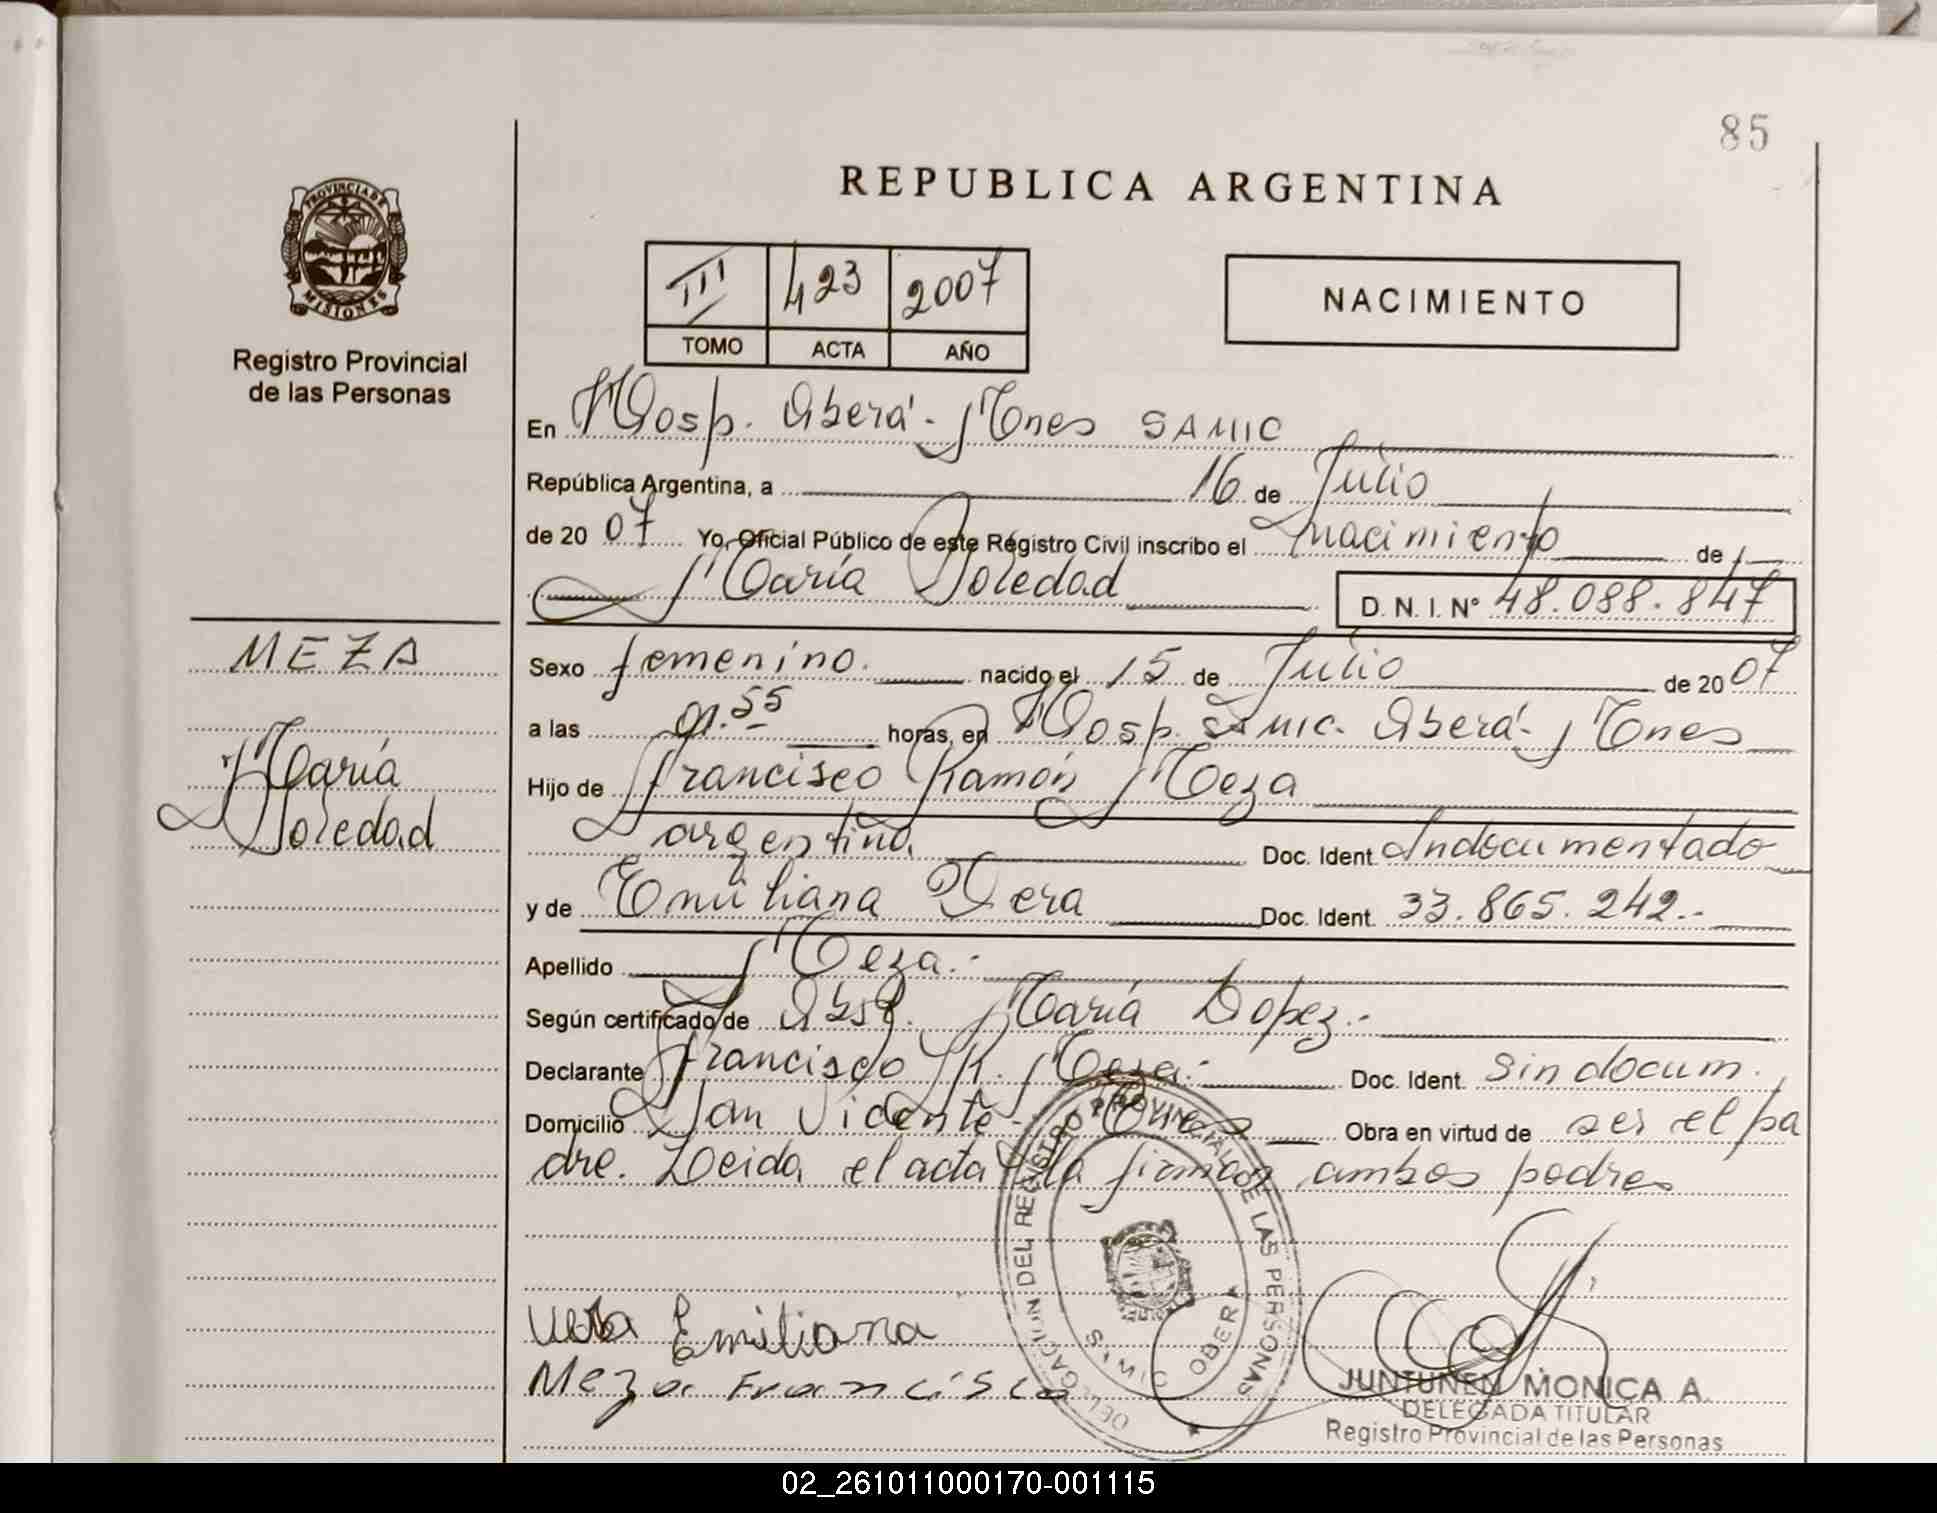 85
REPUBLICA ARGENTINA
PROVINCIA DE
MISIONES
Registro Provincial
de las Personas
III 423 2007
TOMO ACTA AÑO
NACIMIENTO
En Hosp. Oberá - Mnes SAMIC
República Argentina, a 16 de Julio
de 20 07 Yo, Oficial Público de este Registro Civil inscribo el nacimiento de
María Soledad D. N. I. Nº 48.088.847
MEZA
María
Soledad
Sexo femenino. nacido el 15 de Julio de 20 07
a las 01.55 horas, en Hosp. SAMIC. Oberá - Mnes
Hijo de Francisco Ramón Meza
argentino Doc. Ident. Indocumentado
y de Emiliana Vera Doc. Ident. 33.865.242.-
Apellido Meza.-
Según certificado de Obst. María Lopez.-
Declarante Francisco R. Meza.- Doc. Ident. sin docum.
Domicilio San Vicente - Mnes Obra en virtud de ser el pa
dre. Leida el acta la firman ambos padres
Emiliana
Meza Francisco
DELEGACION DEL REGISTRO PROVINCIAL DE LAS PERSONAS
SAMIC OBERA
JUNTUNEN MONICA A.
DELEGADA TITULAR
Registro Provincial de las Personas
02_261011000170-001115